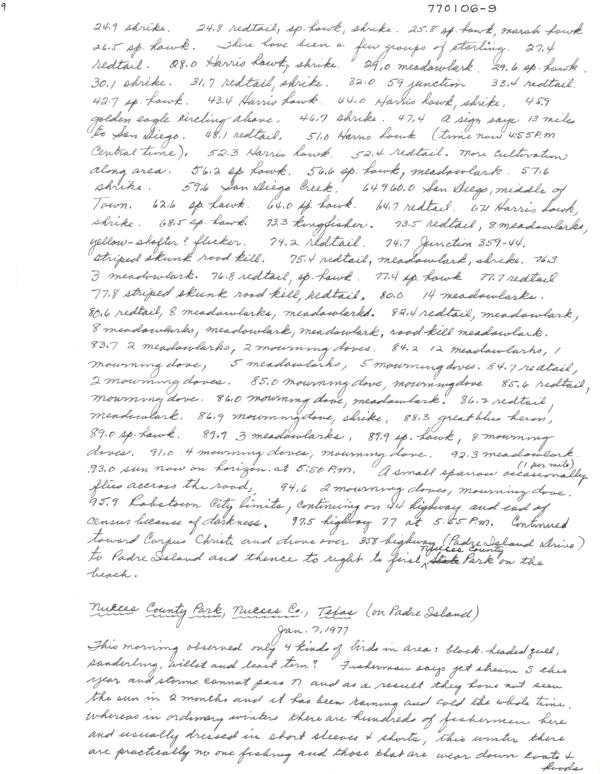 9
770106-9
24.9 shrike. 24.8 redtail, sp. hawk, shrike. 25.8 sp. hawk, marsh hawk
26.5 sp. hawk. There have been a few groups of starling. 27.4
redtail. 28.0 Harris hawk, shrike. 29.0 meadowlark. 29.6 sp. hawk.
30.1 shrike. 31.7 redtail, shrike. 32.0 59 junction 33.4 redtail.
42.7 sp. hawk. 43.4 Harris hawk. 44.0 Harris hawk, shrike. 45.9
golden eagle circling above. 46.7 shrike. 47.4 A sign says 13 miles
to San Diego. 48.1 redtail. 51.0 Harris hawk (time now 4:55 P.M
Central time). 52.3 Harris hawk. 52.4 redtail. More cultivation
along area. 56.2 sp. hawk. 56.6 sp. hawk, meadowlark. 57.6
shrike. 59.6 San Diego Creek. 64960.0 San Diego, middle of
Town. 62.6 sp. hawk. 64.0 sp. hawk. 64.7 redtail. Harris hawk,
shrike. 68.5 sp. hawk. 73.3 kingfisher. 73.5 redtail, 8 meadowlarks,
yellow-shafter? flicker. 74.2 redtail. 74.7 Junction 359-44.
striped skunk road kill. 75.4 redtail, meadowlark, shrike. 76.3
3 meadowlark. 76.8 redtail, sp. hawk. 77.4 sp. hawk 77.7 redtail
77.8 striped skunk road kill, redtail. 80.0 14 meadowlarks.
80.6 redtail, 8 meadowlarks, meadowlark. 82.4 redtail, meadowlark,
8 meadowlarks, meadowlark, meadowlark, road kill meadowlark.
83.7 2 meadowlarks, 2 mourning doves. 84.2 12 meadowlarks, 1
mourning dove, 5 meadowlarks, 5 mourning doves. 84.7 redtail,
2 mourning doves. 85.0 mourning dove, mourning dove 85.6 redtail,
mourning dove. 86.0 mourning dove, meadowlark. 86.2 redtail,
meadowlark. 86.9 mourning dove, shrike, 88.3 great blue heron,
89.0 sp. hawk. 89.9 3 meadowlarks, 89.9 sp. hawk, 8 mourning
doves. 91.0 4 mourning doves, mourning dove. 92.3 meadowlark.
93.0 sun now on horizon at 5:50 P.M. A small sparrow occasionally (1 per mile)
flies accross the road, 94.6 2 mourning doves, mourning dove.
95.9 Robstown City limits, continuing on 44 highway and end of
census because of darkness. 97.5 highway 77 at 5:55 P.M. Continued
toward Corpus Christi and drove over 358 highway (Padre Island Drive)
to Padre Island and thence to right to first Nueces County Park on the
beach.
Nueces County Park, Nueces Co., Texas (on Padre Island)
Jan. 7, 1977
This morning observed only 4 kinds of birds in area: black-headed gull,
sanderling, willet and least tern? Fisherman says jet stream S this
year and storms cannot pass N and as a result they have not seen
the sun in 2 months and it has been raining and cold the whole time.
Whereas in ordinary winters there are hundreds of fishermen here
and usually dressed in short sleeves & shorts, this winter there
are practically no one fishing and those that are wear down coats &
hoods